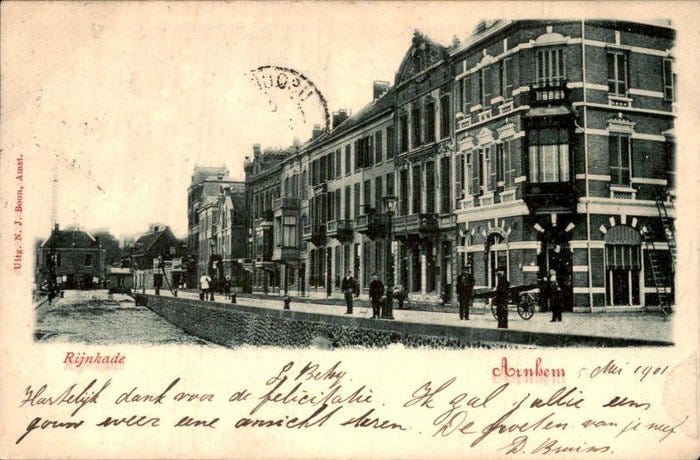 Uitg. N. J. Boon, Amst.
Rijnkade
Arnhem 5 Mei 1901
L. Beby
Hartelijk dank voor de felicitatie. Ik zal jullie eens
gouw weer eene ansicht sturen. De groeten van je neef
D. Bruins.